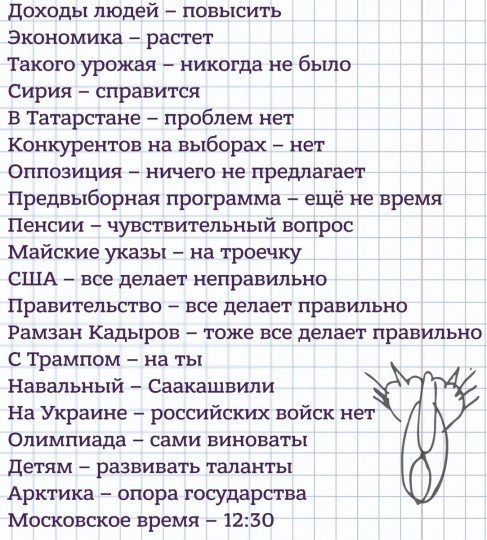 Доходы людей – повысить
Экономика – растет
Такого урожая – никогда не было
Сирия – справится
В Татарстане – проблем нет
Конкурентов на выборах – нет
Оппозиция – ничего не предлагает
Предвыборная программа – ещё не время
Пенсии – чувствительный вопрос
Майские указы – на троечку
США – все делает неправильно
Правительство – все делает правильно
Рамзан Кадыров – тоже все делает правильно
С Трампом – на ты
Навальный – Саакашвили
На Украине – российских войск нет
Олимпиада – сами виноваты
Детям – развивать таланты
Арктика – опора государства
Московское время – 12:30